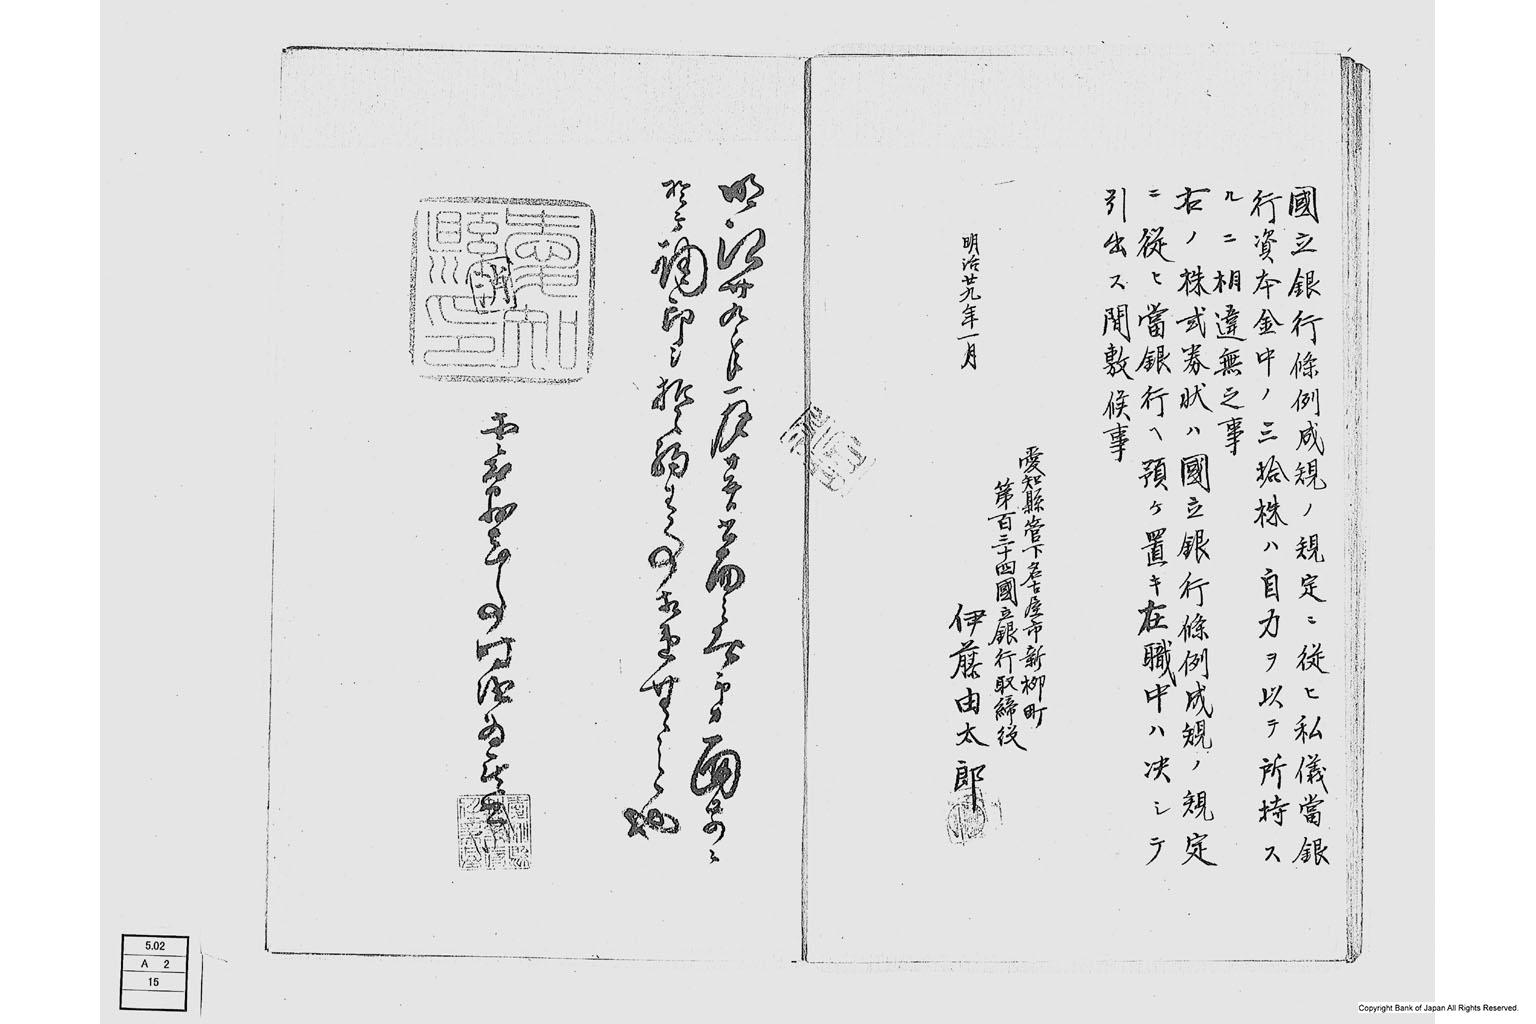 國立銀行條例成規ノ規定ニ從ヒ私儀當銀
行資本金中ノ三拾株ハ自力ヲ以テ所持ス
ルニ相違無之事
右ノ株式券状ハ國立銀行條例成規ノ規定
ニ從ヒ當銀行ヘ預ケ置キ在職中ハ决シテ
引出ス間敷候事
明治廿九年一月
愛知縣管下名古屋市新柳町
第百三十四國立銀行取締役
伊藤由太郎
明治廿九年一月廿
面前ニ
於テ調印シ
相違無之也
愛知縣印
5.02
A 2
15
Copyright Bank of Japan All Rights Reserved.